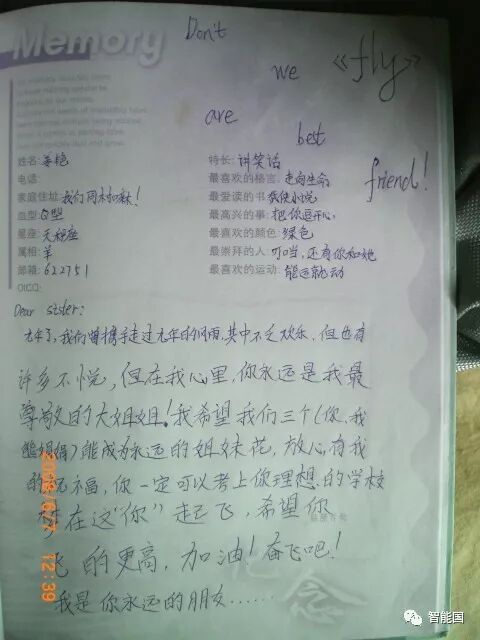 Memory
Don't
we 《fly》
are
best
friend!
姓名:
电话:
家庭住址:我们同木加林!
血型:O型
星座:天秤座
属相:羊
邮箱:622751
OICQ:
特长:讲笑话
最喜欢的格言:走向生命
最爱读的书:武侠小说
最高兴的事:把你逗开心
最喜欢的颜色:绿色
最崇拜的人:叮当,还有你和她
最喜欢的运动:能运就动
Dear sister:
九年了,我们曾携手走过九年的风雨,其中不乏欢乐,但也有
许多不悦,但在我心里,你永远是我最
尊敬的大姐姐!我希望我们三个(你,我
能成为永远的姐妹花,放心,有我
的祝福,你一定可以考上你理想的学校
梦在这"你"起飞,希望你
飞的更高,加油!奋飞吧!
我是你永远的朋友……
念
12:39
智能国